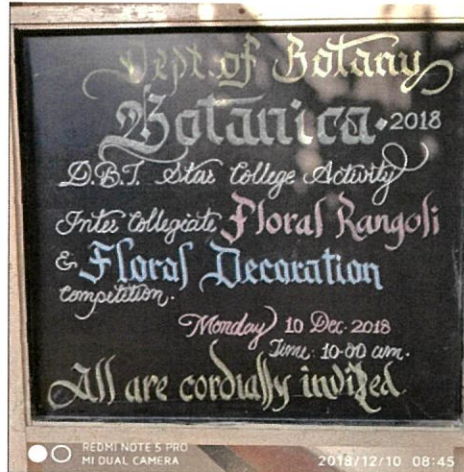 Dept. of Botany
Botanica • 2018
D.B.T. Star College Activity
Inter Collegiate Floral Rangoli
& Floral Decoration
Competition.
Monday 10 Dec. 2018
Time: 10-00 am.
All are cordially invited
REDMI NOTE 5 PRO
MI DUAL CAMERA
2018/12/10 08:45